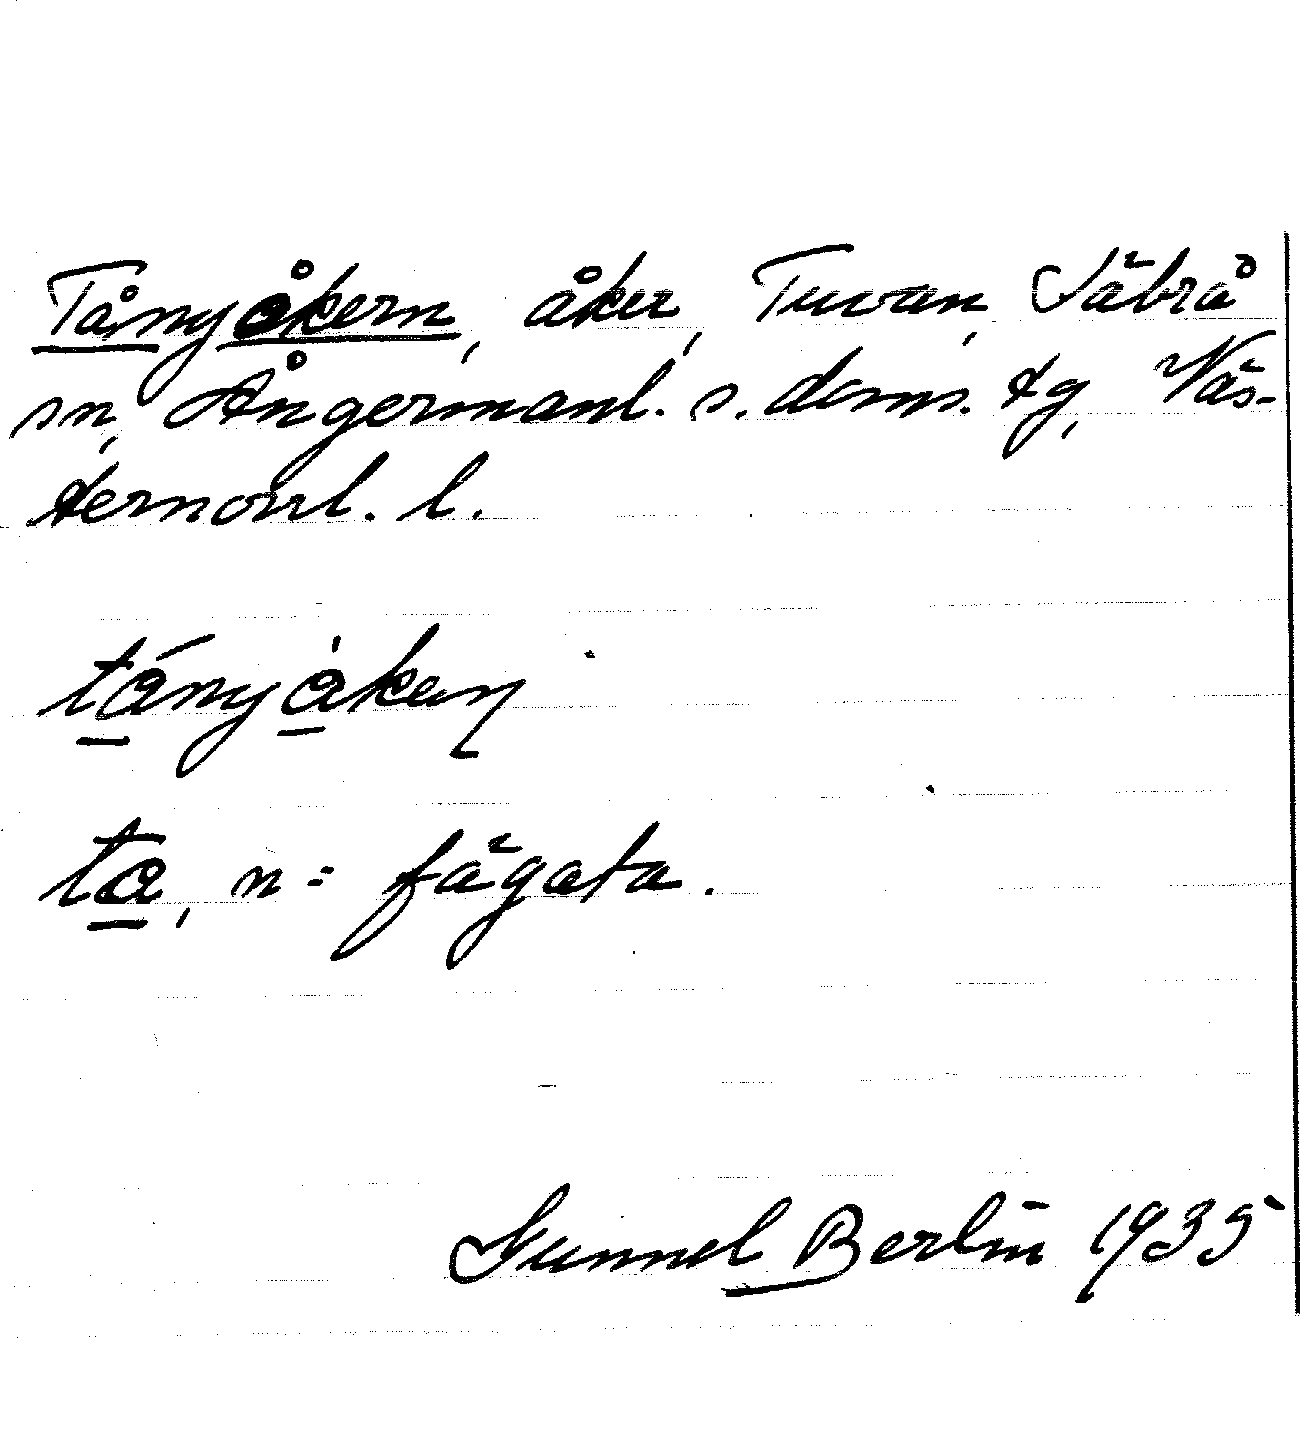 Tånyåkern, åker, Tuvan, Säbrå
sn, Ångermanl. s. doms. tg, Väs-
ternorrl. l.
tányàkeɳ
ta, n = fägata.
Gunnel Berlin 1935